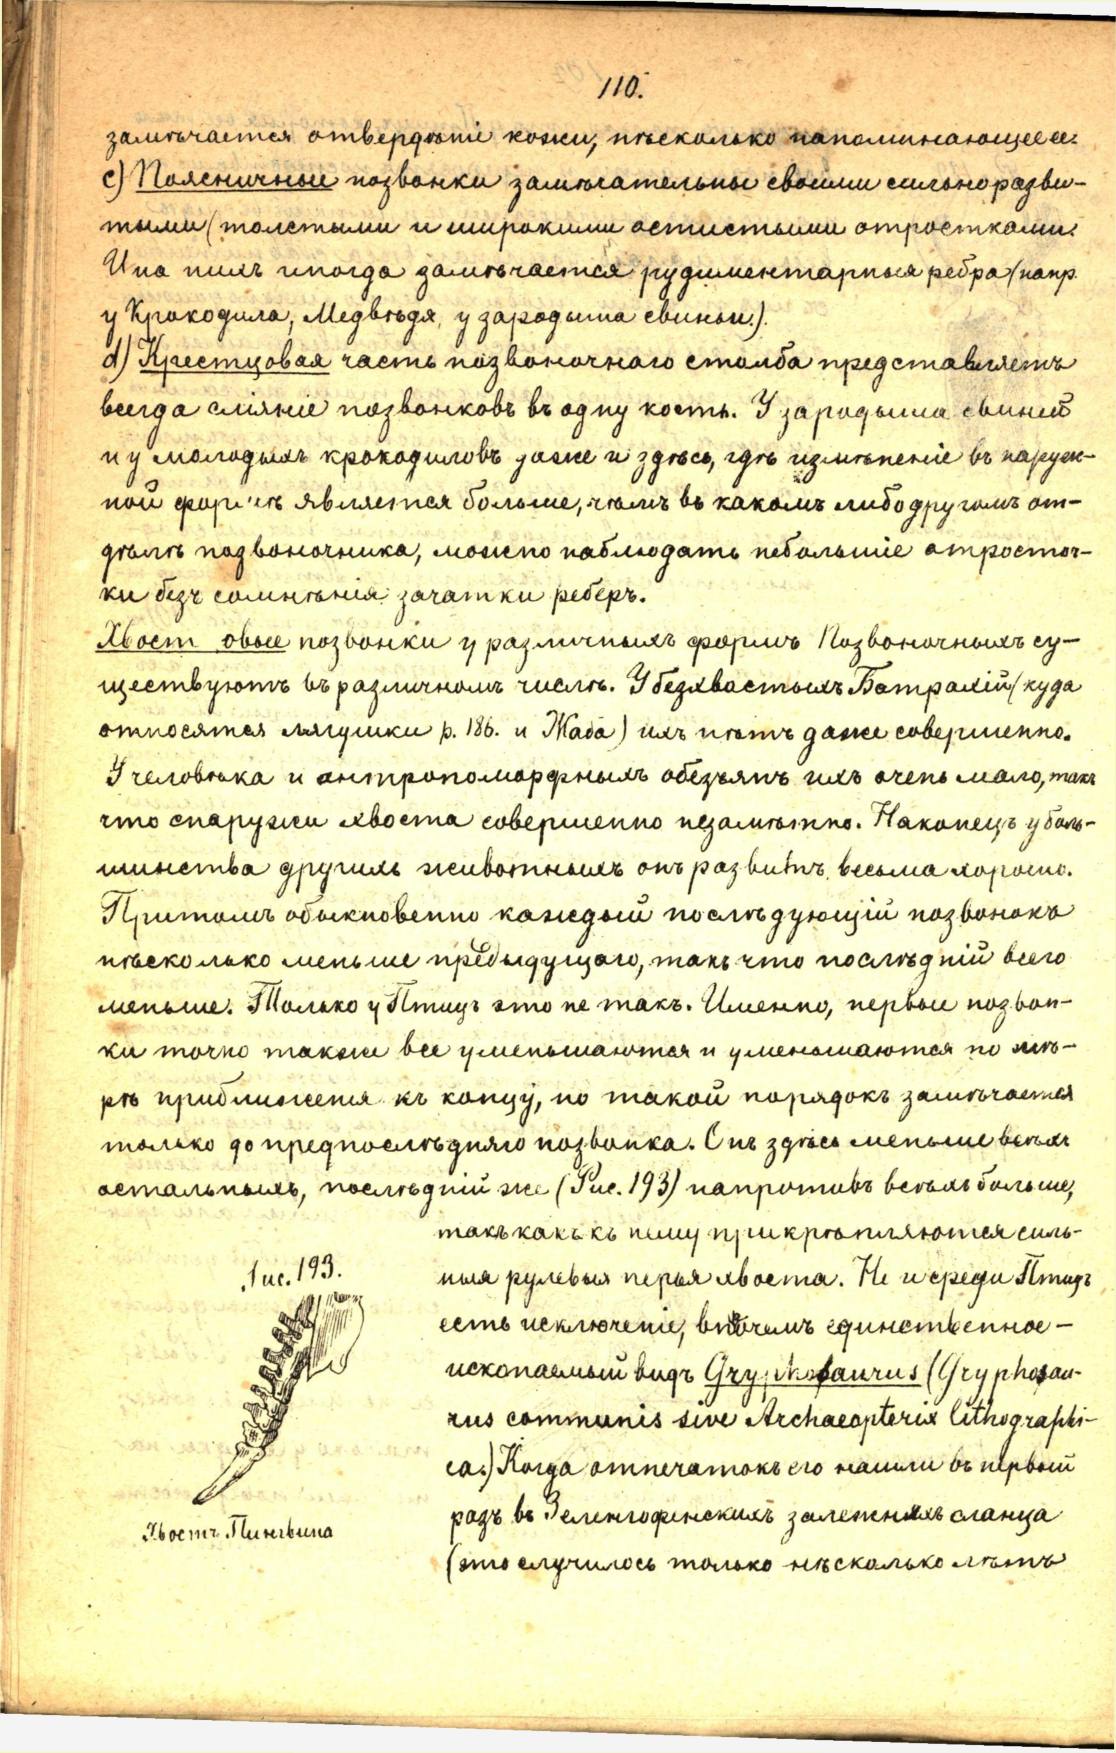 110.
замѣчается отвердѣніе кожи, нѣсколько напоминающее ее.
с) Поясничные позвонки замѣчательны своими сильно разви-
тыми (толстыми и широкими остистыми отростками.
И на нихъ иногда замѣчается рудиментарныя ребра (напр.
у Крокодила, Медвѣдя, у зародыша свиньи.).
d) Крестцовая часть позвоночнаго столба представляетъ
всегда сліяніе позвонковъ въ одну кость. У зародыша свиней
и у молодыхъ крокодиловъ даже и здѣсь, гдѣ измѣненіе въ наруж-
ной формѣ является больше, чѣмъ въ какомъ либо другомъ от-
дѣлѣ позвоночника, можно наблюдать небольшіе отросточ-
ки безъ сомнѣнія зачатки реберъ.
Хвостовые позвонки у различныхъ формъ Позвоночныхъ су-
ществуютъ въ различномъ числѣ. У безхвостыхъ Батрахій (куда
относятся лягушки р. 186. и Жаба) ихъ нѣтъ даже совершенно.
У человѣка и антропоморфныхъ обезьянъ ихъ очень мало, такъ
что снаружи хвоста совершенно незамѣтно. Наконецъ у боль-
шинства другихъ животныхъ онъ развитъ весьма хорошо.
Притомъ обыкновенно каждый послѣдующій позвонокъ
нѣсколько меньше предыдущаго, такъ что послѣдній всего
меньше. Только у Птицъ это не такъ. Именно, первые позвон-
ки точно также все уменьшаются и уменьшаются по мѣ-
рѣ приближенія къ концу, но такой порядокъ замѣчается
только до предпослѣдняго позвонка. Онъ здѣсь меньше всѣхъ
остальныхъ, послѣдній же (Рис. 193) напротивъ всѣхъ больше,
такъ какъ къ нему прикрѣпляются силь-
ныя рулевыя перья хвоста. Но и среди Птицъ
есть исключеніе, впрочемъ единственное –
ископаемый видъ Gryphosaurus (Gryphosau-
rus communis sive Archaeopterix lithographi-
ca.) Когда отпечатокъ его нашли въ первый
разъ въ Зеленгофенскихъ залежахъ сланца
(это случилось только нѣсколько лѣтъ
Рис. 193.
Хвостъ Пингвина